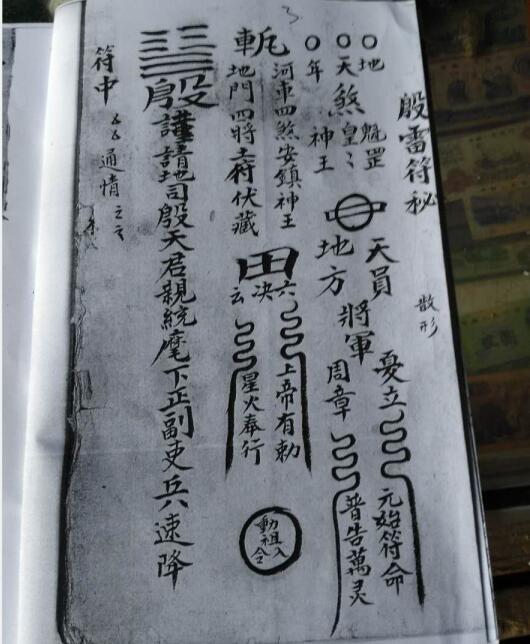 殷雷符秘
散形
地
天
年
魁罡
皇
煞
神王
天員
地方
將軍
憂立
周章
元始符命
普告萬灵
斬
河車四煞安鎮神王
地門四將土府伏藏
田
六
決
云
上帝有勅
星火奉行
動祖入令
殷
謹請地司殷天君親統麾下正副吏兵速降
符中
通情